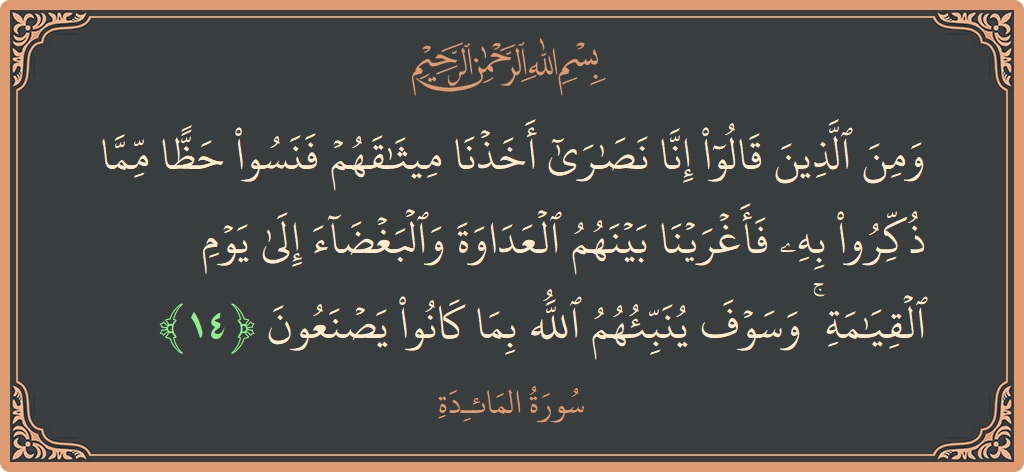 بِسْمِ اللَّهِ الرَّحْمَٰنِ الرَّحِيمِ
وَمِنَ ٱلَّذِينَ قَالُوٓا۟ إِنَّا نَصَٰرَىٰٓ أَخَذْنَا مِيثَٰقَهُمْ فَنَسُوا۟ حَظًّا مِّمَّا
ذُكِّرُوا۟ بِهِۦ فَأَغْرَيْنَا بَيْنَهُمُ ٱلْعَدَاوَةَ وَٱلْبَغْضَآءَ إِلَىٰ يَوْمِ
ٱلْقِيَٰمَةِ ۚ وَسَوْفَ يُنَبِّئُهُمُ ٱللَّهُ بِمَا كَانُوا۟ يَصْنَعُونَ ﴿١٤﴾
سُورَةُ المَائِدَةِ